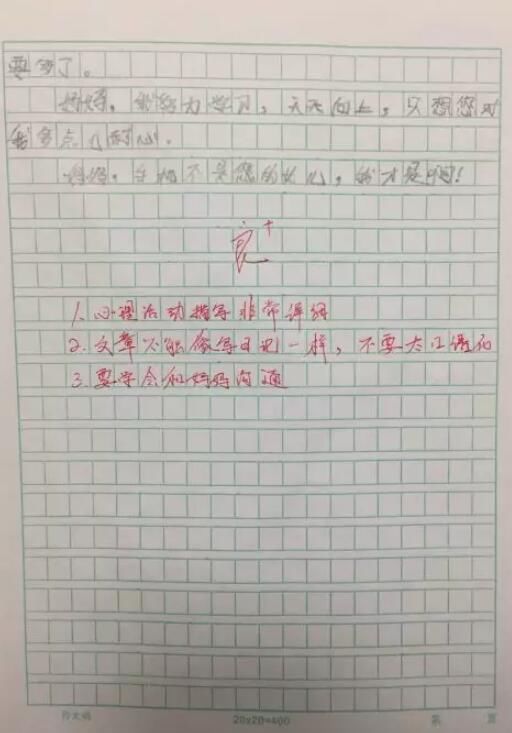 要多了。
妈妈，我努力学习，天天向上，只想您对
我多点儿耐心。
妈妈，手机不是您的女儿，我才是啊！
良+
1.心理活动描写非常详细
2.文章不能像写日记一样，不要太口语化
3.要学会和妈妈沟通
20x20=400
第 页